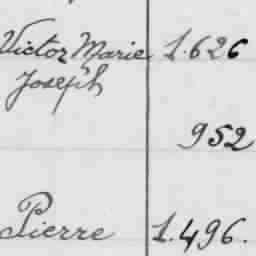 Victor Marie 1.626
Joseph
952
Pierre 1.496.